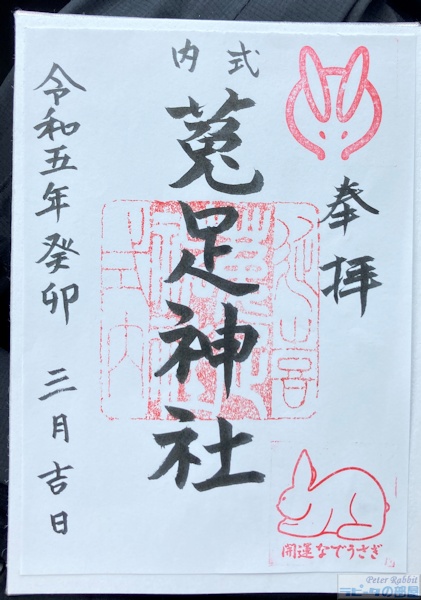 奉拝
式内
菟足神社
令和五年癸卯 三月吉日
開運なでうさぎ
Peter Rabbit